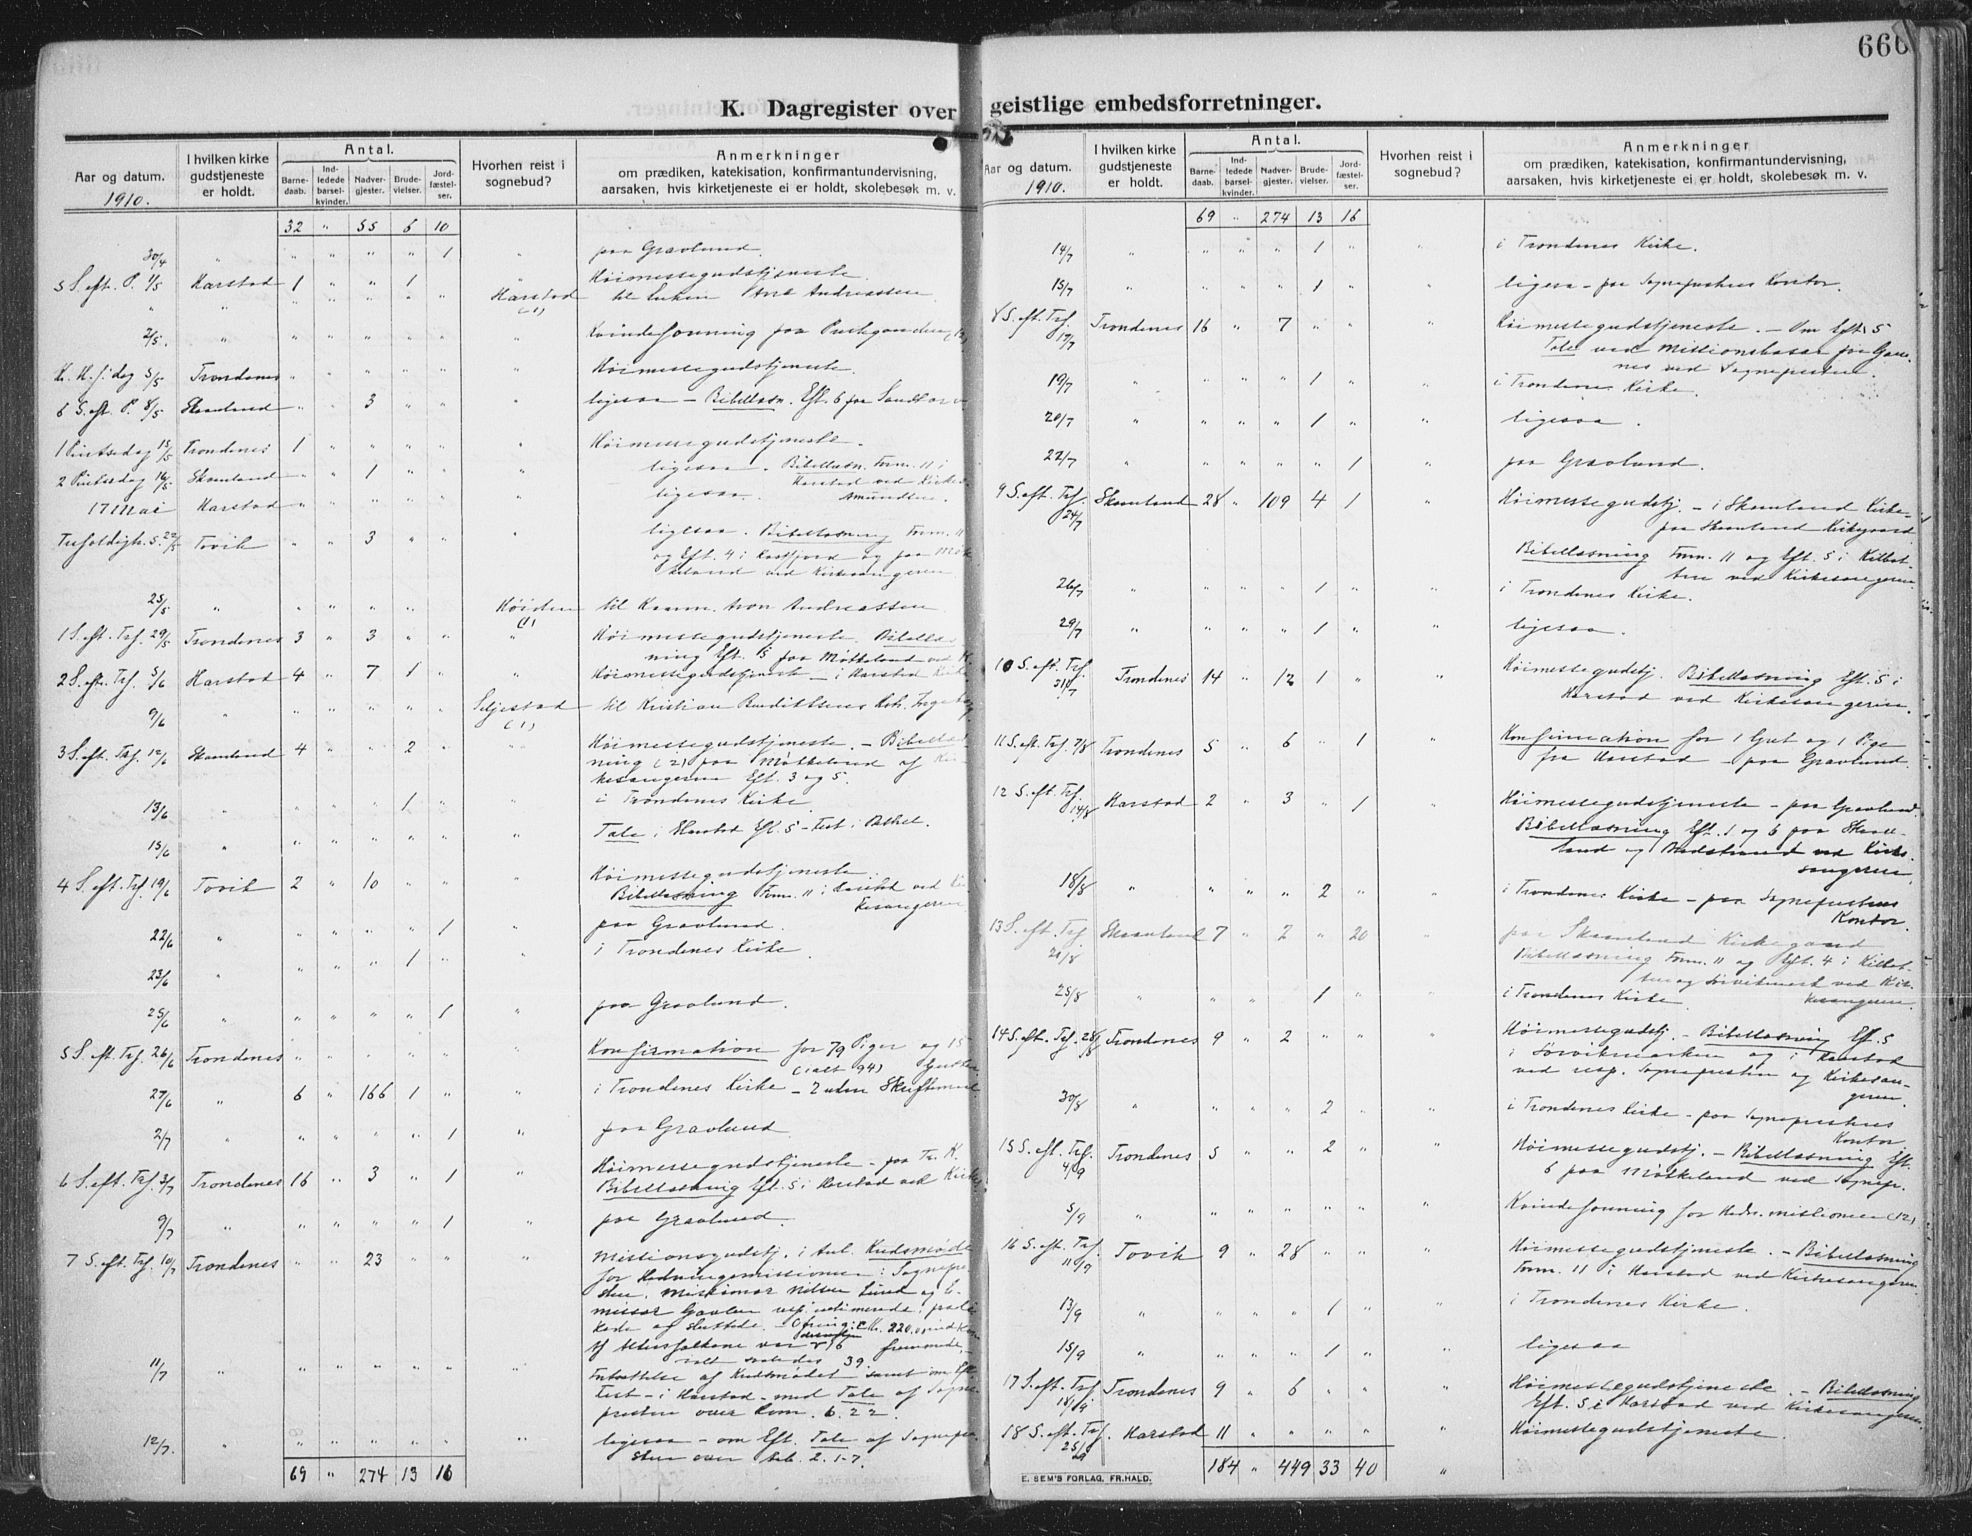 666
K. Dagregister over geistlige embedsforretninger.
Aar og datum.
1910.
I hvilken kirke gudstjeneste er holdt.
Antal.
Barnedaab. Indledede barselkvinder. Nadvergjester. Brudevielser. Jordfæstelser.
Hvorhen reist i sognebud?
Anmerkninger
om prædiken, katekisation, konfirmantundervisning,
aarsaken, hvis kirketjeneste ei er holdt, skolebesøk m. v.
32 " 55 6 10
30/4 " " " " " 1 " paa Gravlund.
5 S. eft. P. 1/5 Harstad 1 " " 1 " Høimessegudstjeneste.
" " " " " " " Harstad (1) til Enken Andreassen
2/5. " " " " " " " Kvindeforening paa
K. H. f. dag 5/5 Trondenes " " " " " " Høimessegudstjeneste.
6 S. eft. P. 8/5 Skaanland " " 3 " " " ligesaa – Bibellæsn. Eft. 6 paa
1 Pintsedag 15/5 Trondenes 1 " " " " " Høimessegudstjeneste.
2 Pintsedag 16/5 Skaanland " " 1 " " " ligesaa. Bibellæsn. Form. 11 i
Harstad ved
17 Mai Harstad " " " " " " ligesaa.
Trefoldigh. S. 22/5 Tovik " " 3 " " " ligesaa. Bibellæsning Form. 11
og Eft. 4 i og paa
ved Kirkesangeren
25/5 " " " " " " (1) til Andreassen
1 S. eft. Trf. 29/5 Trondenes 3 " 3 " " " Høimessegudstjeneste. Bibellæs-
ning Eft. 5 paa Møkkeland ved K.
2 S. eft. Trf. 5/6 Harstad 4 " 7 1 " " Høimessegudstjeneste – i Harstad Kirke
9/6 " " " " " " Seljestad (1) til Kristian
3 S. eft. Trf. 12/6 Skaanland 4 " " 2 " " Høimessegudstjeneste. – Bibellæs-
ning (2) paa Møkkeland af Kir-
kesangeren Eft. 3 og 5.
13/6 " " " " 1 " " i Trondenes Kirke
15/6 " " " " " " " Tale i Harstad Eft. 5 – Fest i Bethel.
4 S. eft. Trf. 19/6 Tovik 2 " 10 " " " Høimessegudstjeneste.
Bibellæsning Form. 11 i Harstad ved Kir-
kesangeren
22/6 " " " " " 1 " paa Gravlund.
23/6 " " " " 1 " i Trondenes Kirke
25/6 " " " " " 1 " paa Gravlund.
5 S. eft. Trf. 26/6 Trondenes " " " " " " Konfirmation for 79 Piger og 15
(ialt 94) Gutter.
27/6 " 6 " 166 1 " " i Trondenes Kirke – 2 uden Skriftemaal
2/7 " " " " " 1 " paa Gravlund
6 S. eft. Trf. 3/7 Trondenes 16 " 3 " 1 " Høimessegudstjeneste – paa Tr. K.
Bibellæsning Eft. 5 i Harstad ved Kirkes
9/7 " " " " " 1 " paa Gravlund.
7 S. eft. Trf. 10/7 Trondenes " " 23 " " Missionsgudstj. i Anl. Kredsmøde
for Hedningemissionen: Sognepre-
sten, Missionær Nilsen Lund og E-
missær
Mk. 220,
fremmede,
39.
11/7 " " " " " " " Fortsættelse af Kredsmødet samt om Eft.
Fest – i Harstad – med Tale af Sogne-
presten over Rom. 6.22.
12/7. " " " " " " " ligesaa – om Eft. Tale af Sognepre-
sten over 2. 1-7.
69 " 274 13 16
Aar og datum.
1910.
I hvilken kirke gudstjeneste er holdt.
Antal.
Barnedaab. Indledede barselkvinder. Nadvergjester. Brudevielser. Jordfæstelser.
Hvorhen reist i sognebud?
Anmerkninger
om prædiken, katekisation, konfirmantundervisning,
aarsaken, hvis kirketjeneste ei er holdt, skolebesøk m. v.
69 " 274 13 16
14/7 " " " " 1 " " i Trondenes Kirke.
15/7 " " " " 1 " " ligesaa – paa Sogneprestens Kontor.
8 S. eft. Trf. 17/7 Trondenes 16 " 7 " " " Høimessegudstjeneste. – Om Eft. 5
Tale ved Missionsbasar
ved Sognepresten.
19/7 " " " " 1 " " i Trondenes Kirke.
20/7 " " " " 1 " " ligesaa.
22/7 " " " " " 1 " paa Gravlund.
9 S. eft. Trf. 24/7 Skaanland 28 " 109 4 1 " Høimessegudstj. – i Skaanland Kirke –
paa Skaanland Kirkegaard
Bibellæsning Form. 11 og Eft. 5 i Kilbot-
ten ved Kirkesangeren
26/7 " " " " 1 " " i Trondenes Kirke.
29/7 " " " " 1 " " ligesaa.
10 S. eft. Trf. 31/7 Trondenes 14 " 12 1 " " Høimessegudstj. Bibellæsning Eft. 5 i
Harstad ved Kirkesangeren.
11 S. eft. Trf. 7/8 Trondenes 5 " 6 " 1 " Konfirmation for 1 Gut og 1 Pige
fra Harstad – paa Gravlund.
12 S. eft. Trf. 14/8 Harstad 2 " 3 " 1 " Høimessegudstjeneste – paa Gravlund.
Bibellæsning Eft. 1 og 6 paa Skaan-
land og ved Kirke-
sangeren.
18/8 " " " " 2 " " i Trondenes Kirke – paa Sogneprestens
Kontor.
13 S. eft. Trf. 21/8 Skaanland 7 " 2 " 20 paa Skaanland Kirkegaard
Bibellæsning Form. 11 og Eft. 4 i Kilbot-
ten og Sørvikmark ved Kir-
kesangeren
25/8 " " " " 1 " " i Trondenes Kirke
14 S. eft. Trf. 28/8 Trondenes 9 " 2 " " " Høimessegudstj. – Bibellæsning Eft. 5
i Sørvikmarken og i Harstad
ved resp. Sognepresten og Kirkesan-
geren.
30/8 " " " " 2 " " i Trondenes Kirke – paa Sognepresten
Kontor
15 S. eft. Trf. 4/9 Trondenes 5 " " 2 " " Høimessegudstj. – Bibellæsning Eft.
6 paa Møkkeland ved Sognepr.
5/9 " " " " " " Kvindeforening for Hedn. missionen (12)
16 S. eft. Trf. 11/9 Tovik 9 " 28 " " " Høimessegudstjeneste. – Bibellæsning
Form. 11 i Harstad ved Kirkesangeren
13/9 " " " " 1 " " i Trondenes Kirke.
15/9 " " " " 1 " " ligesaa
17 S. eft. Trf. 18/9 Trondenes 9 " 6 " " " Høimessegudstjeneste. – Bibellæsning
Eft. 5 i Harstad ved Kirkesangeren
18 S. eft. Trf. 25/9 Harstad 11 " " " " " Høimessegudstjeneste.
184 " 449 33 40 "
E. SEM'S FORLAG, FR.HALD.